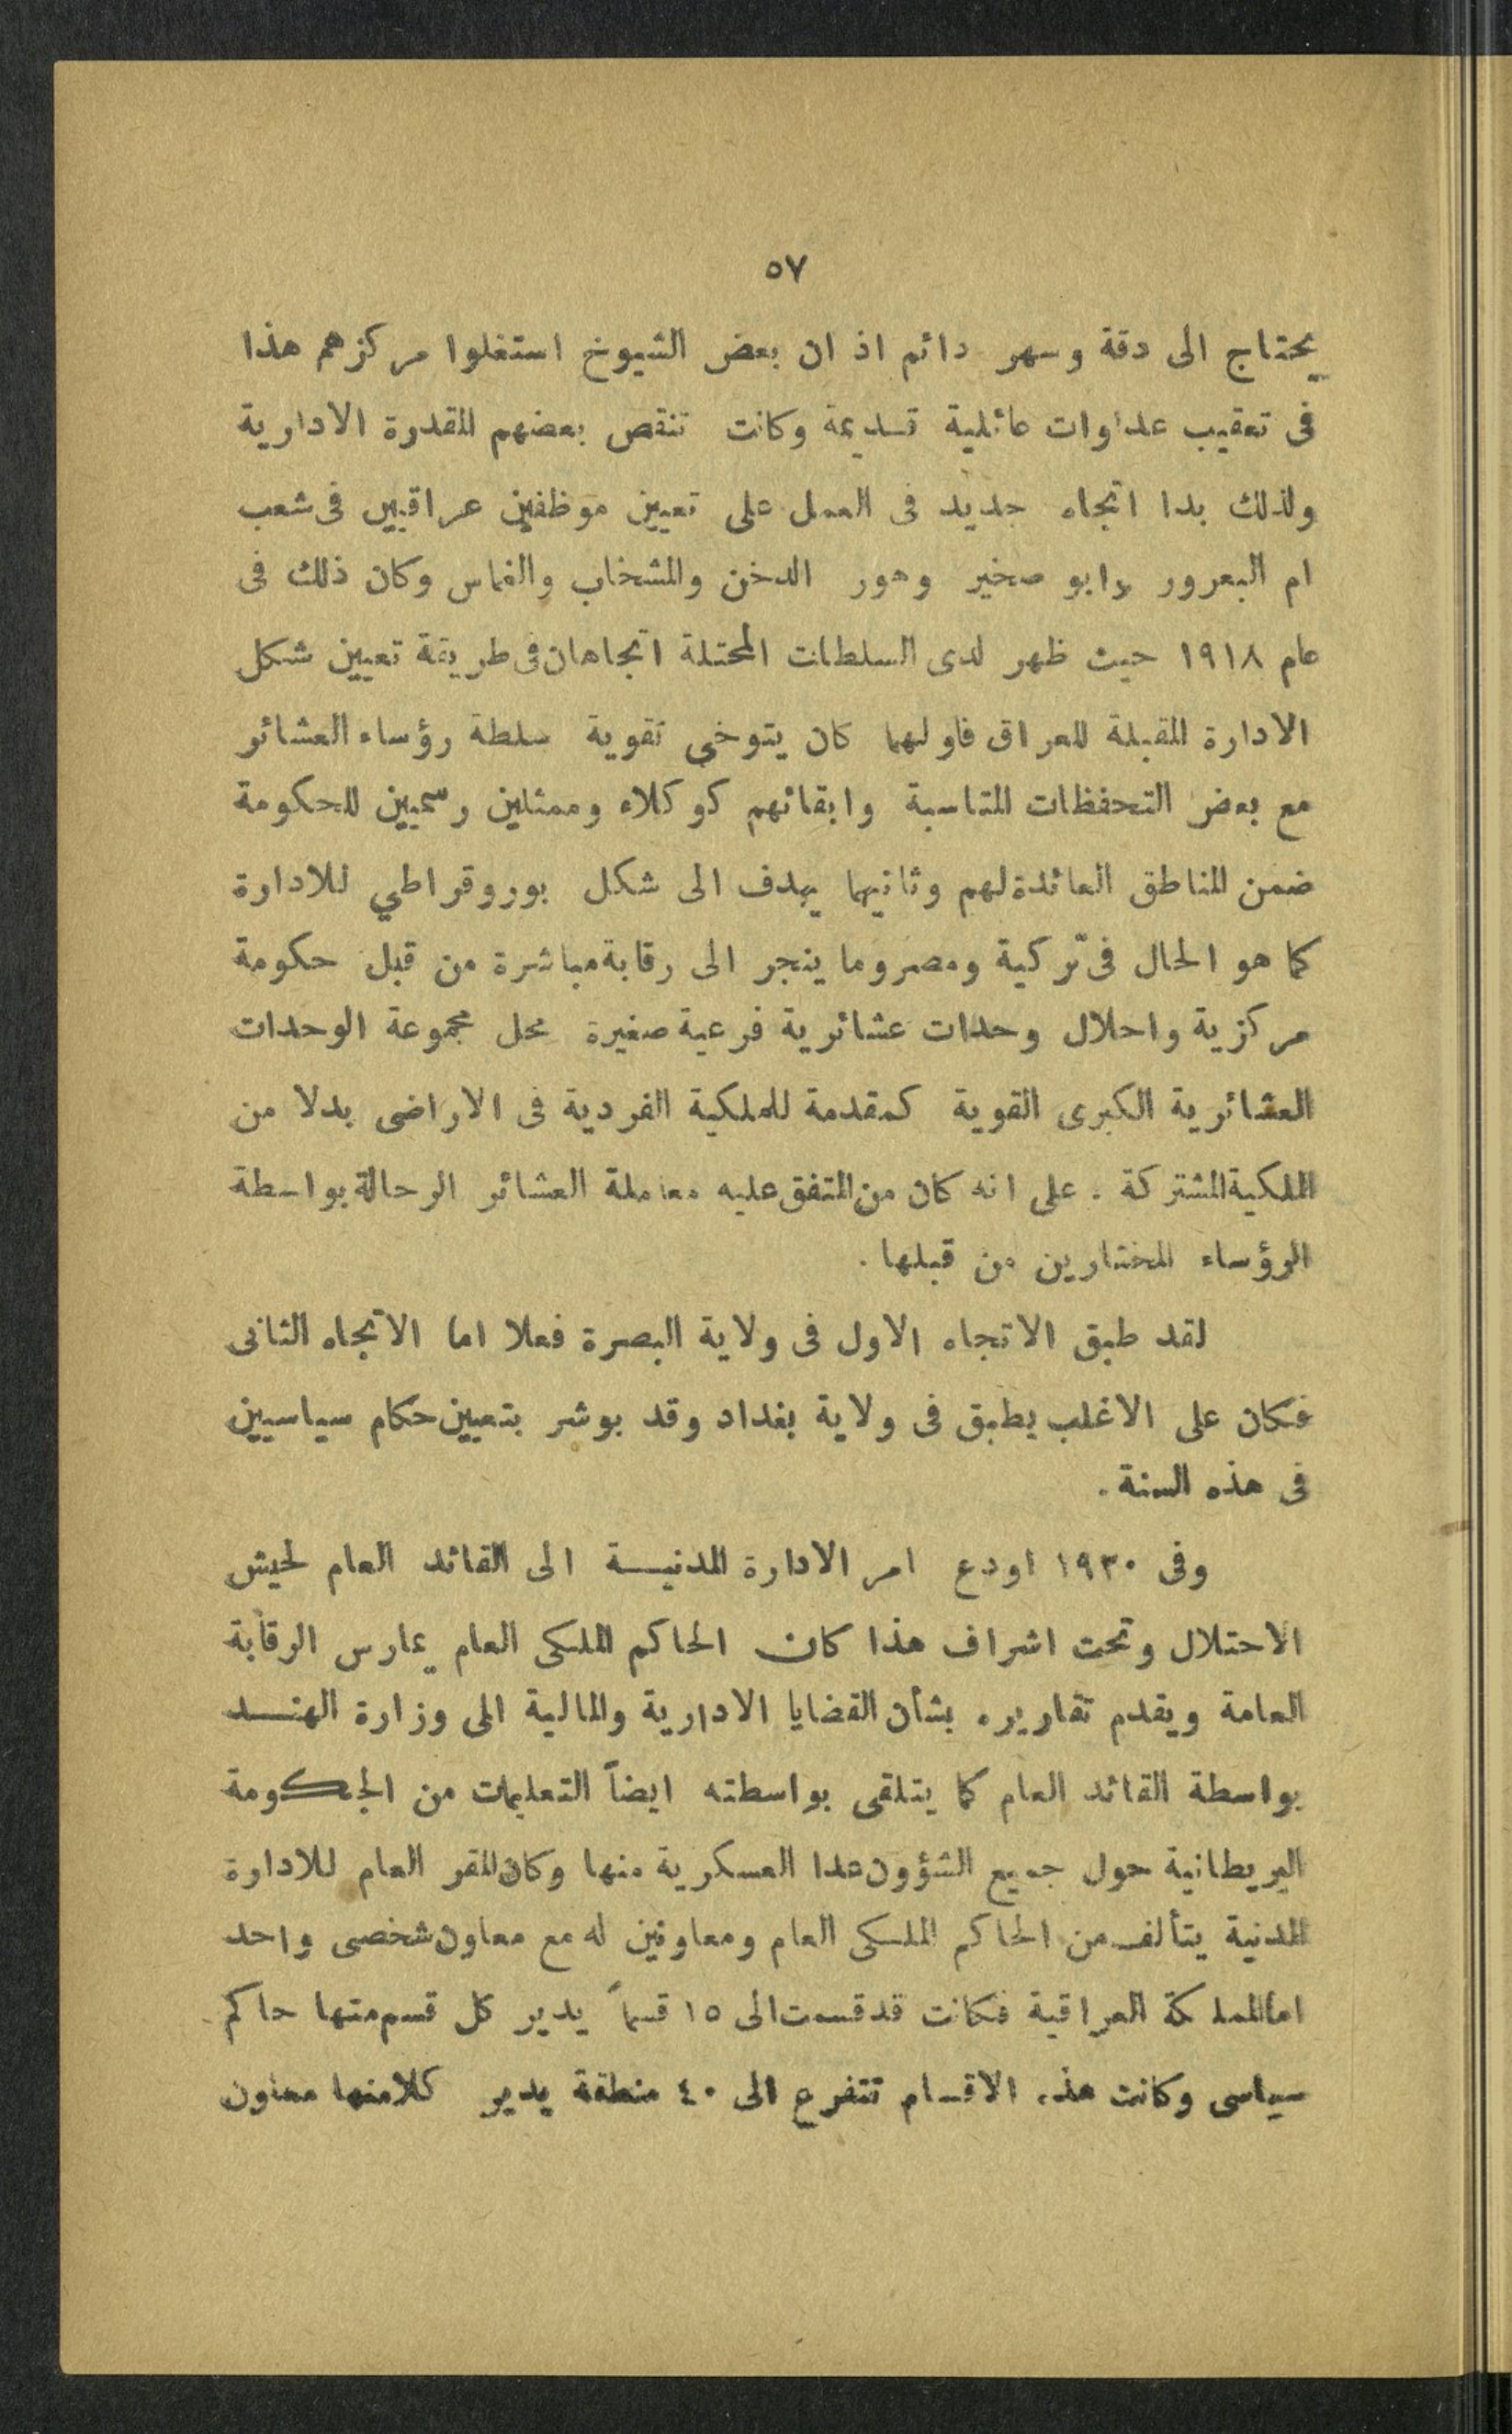 ٥٧
يحتاج الى دقة وسهر دائم اذ ان بعض الشيوخ استغلوا مركزهم هذا
فى تعقيب عداوات عائلية قديمة وكانت تنقص بعضهم المقدرة الادارية
ولذلك بدا اتجاه جديد فى العمل على تعيين موظفين عراقيين فى شعب
ام البعرور وابو صخير وهور الدخن والمشخاب والغماس وكان ذلك فى
عام ١٩١٨ حيث ظهر لدى السلطات المحتلة اتجاهان فى طريقة تعيين شكل
الادارة المقبلة للعراق فاولهما كان يتوخى تقوية سلطة رؤساء العشائر
مع بعض التحفظات المتاسبة وابقائهم كوكلاء وممثلين رسميين للحكومة
ضمن المناطق العائدة لهم وثانيهما يهدف الى شكل بوروقراطي للادارة
كما هو الحال فى تركية ومصر وما ينجر الى رقابة مباشرة من قبل حكومة
مركزية واحلال وحدات عشائرية فرعية صغيرة محل مجموعة الوحدات
العشائرية الكبرى القوية كمقدمة للملكية الفردية فى الاراضى بدلا من
الملكية المشتركة . على انه كان من المتفق عليه معاملة العشائر الرحالة بواسطة
الرؤساء المختارين من قبلها .
لقد طبق الاتجاه الاول فى ولاية البصرة فعلا اما الاتجاه الثانى
فكان على الاغلب يطبق فى ولاية بغداد وقد بوشر بتعيين حكام سياسيين
فى هذه السنة .
وفى ١٩٣٠ اودع امر الادارة المدنيـــة الى القائد العام لجيش
الاحتلال وتحت اشراف هذا كان الحاكم الملكى العام يمارس الرقابة
العامة ويقدم تقاريره بشأن القضايا الادارية والمالية الى وزارة الهنـــد
بواسطة القائد العام كما يتلقى بواسطته ايضاً التعليمات من الحكومة
البريطانية حول جميع الشؤون عدا العسكرية منها وكان المقر العام للادارة
المدنية يتألف من الحاكم الملكى العام ومعاونين له مع معاون شخصى واحد
اما المملكة العراقية فكانت قد قسمت الى ١٥ قسماً يدير كل قسم منها حاكم
سياسى وكانت هذه الاقسام تتفرع الى ٤٠ منطقة يدير كلا منها معاون